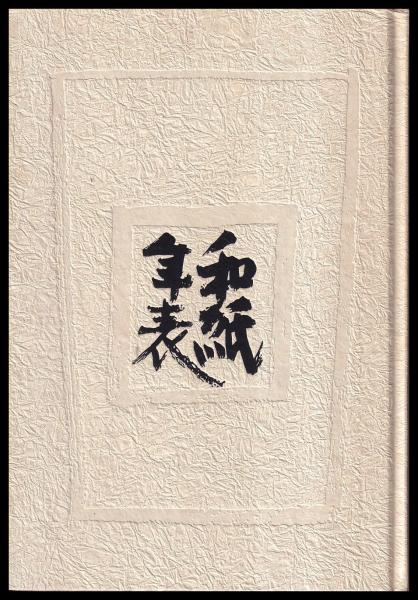 和紙
年表